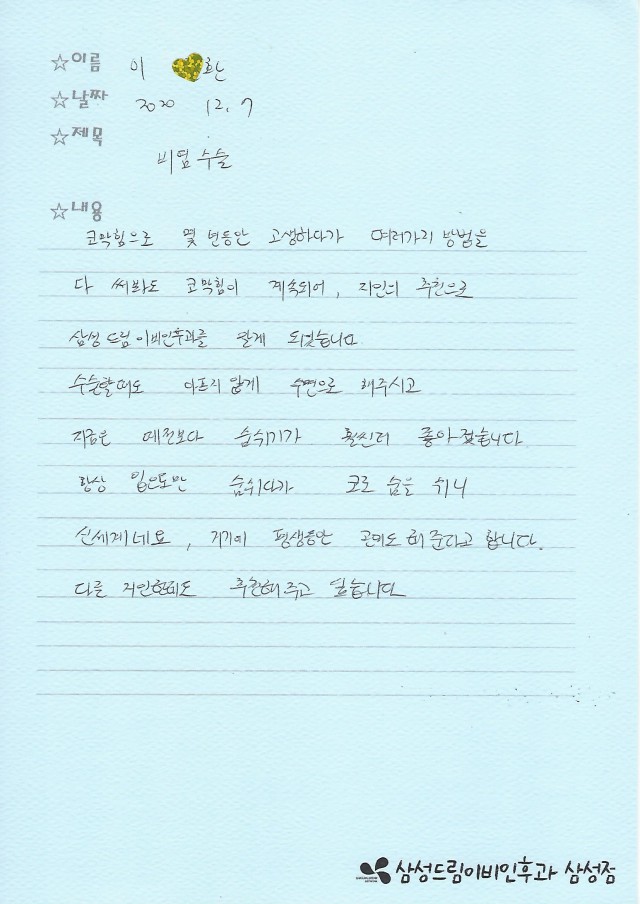 ☆이름 이 환
☆날짜 2020 12. 7
☆제목
비염 수술
☆내용
코막힘으로 몇 년동안 고생하다가 여러가지 방법을
다 써봐도 코막힘이 계속되어, 지인의 추천으로
삼성드림이비인후과를 알게 되었습니다
수술할때도 아프지 않게 수면으로 해주시고
지금은 예전보다 숨쉬기가 훨씬더 좋아졌습니다
항상 입으로만 숨쉬다가 코로 숨을 쉬니
신세계네요, 거기에 평생동안 관리도 해 준다고 합니다.
다른 지인한테도 추천해 주고 싶습니다
삼성드림이비인후과 삼성점